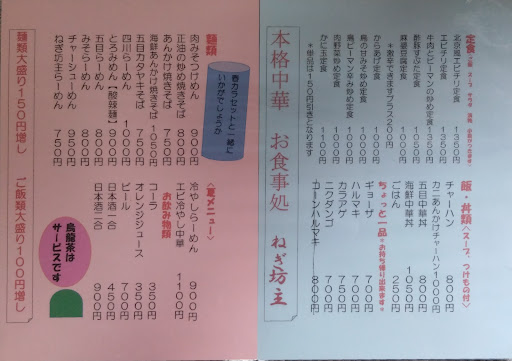 定食
北京風エビチリ定食 1350
エビチリ定食 1350
牛肉とピーマンの炒め定食 1350
酢豚すぶた定食 1100
麻婆豆腐定食 1000
*激辛できますプラス200円
からあげ定食 1100
鳥の甘みそ炒め定食
鳥ピーマン辛み炒め定食
肉野菜炒め定食
かに玉定食 1100
*単品は150円引きとなります
飯・丼類〈スープ、つけもの付〉
チャーハン 800円
カニあんかけチャーハン 1000円
五目中華丼
海鮮中華丼 1050円
ごはん 250円
ちょっと一品*お持ち帰り出来ます*
ギョーザ
ハルマキ
カラアゲ 750円
ニクダンゴ 700円
コーンハルマキ 800円
本格中華 お食事処 ねぎ坊主
麺類
肉みそつけめん 900円
正油の炒め焼きそば 800円
あんかけ焼きそば 750円
海鮮あんかけ焼きそば 1050円
五目カタヤキそば
四川らーめん
とろみめん【酸辣麺】 900円
五目らーめん 800円
みそらーめん 800円
チャーシューめん 950円
ねぎ坊主らーめん 750円
春カラセットと一緒に
いかがでしょうか
〈夏メニュー〉
冷やしらーめん 900円
エビ冷やし中華 1100円
お飲み物類
コーラ 350円
オレンジジュース 350円
ビール 700円
日本酒一合 450円
日本酒二合 900円
烏龍茶は
サービスです
麺類大盛り150円増し ご飯類大盛り100円増し